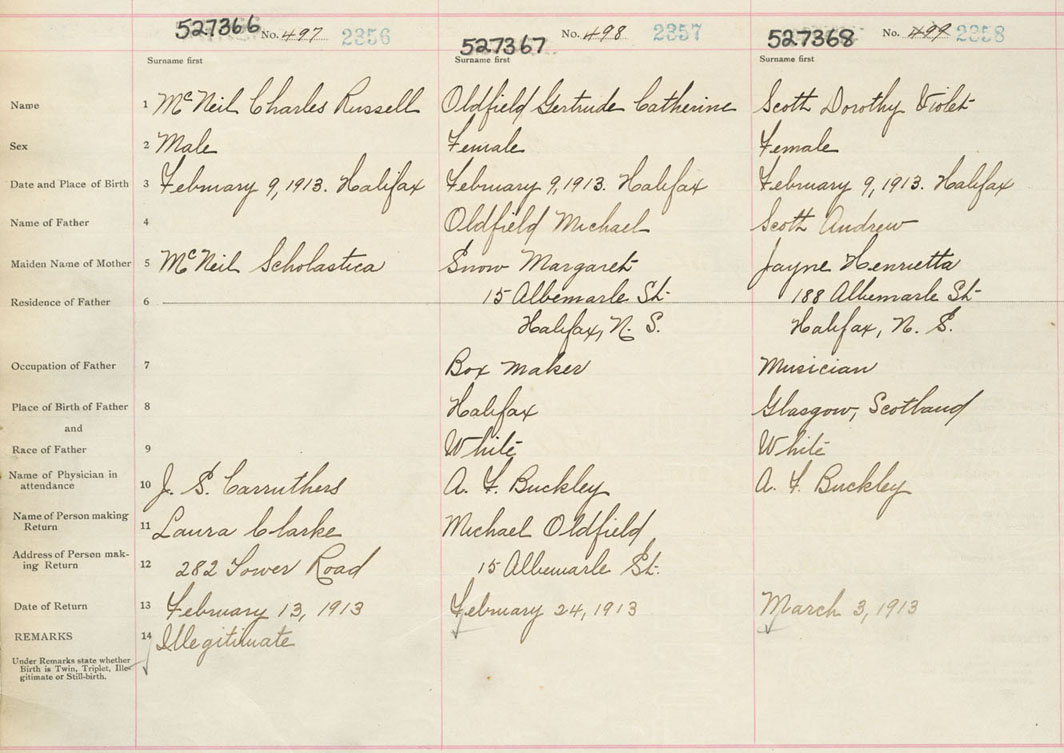 527366 No. 497 2356
527367 No. 498 2357
527368 No. 499 2358
Surname first Surname first Surname first
Name 1 McNeil Charles Russell Oldfield Gertrude Catherine Scott Dorothy Violet
Sex 2 Male Female Female
Date and Place of Birth 3 February 9, 1913. Halifax February 9, 1913. Halifax February 9, 1913. Halifax
Name of Father 4 Oldfield Michael Scott Andrew
Maiden Name of Mother 5 McNeil Scholastica Snow Margaret Jayne Henrietta
Residence of Father 6 15 Albemarle St. 188 Albemarle St.
Halifax, N. S. Halifax, N. S.
Occupation of Father 7 Box maker Musician
Place of Birth of Father 8 Halifax Glasgow, Scotland
and
Race of Father 9 White White
Name of Physician in
attendance 10 J. S. Carruthers A. F. Buckley A. F. Buckley
Name of Person making
Return 11 Laura Clarke Michael Oldfield
Address of Person mak-
ing Return 12 282 Tower Road 15 Albemarle St.
Date of Return 13 February 13, 1913 February 24, 1913 March 3, 1913
REMARKS 14 Illegitimate
Under Remarks state whether
Birth is Twin, Triplet, Ille-
gitimate or Still-birth.